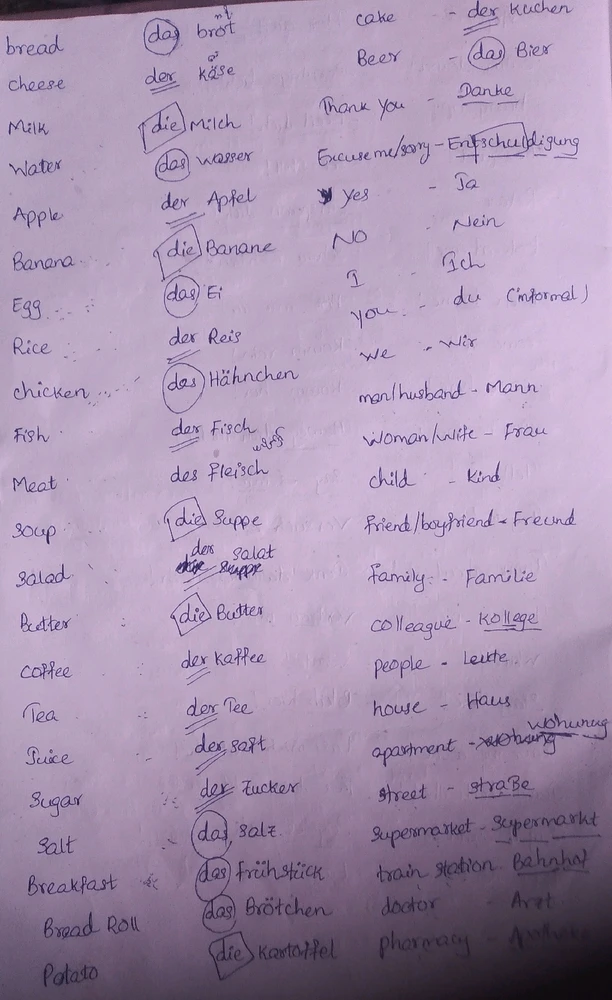 bread das brot
cheese der käse
Milk die Milch
Water das wasser
Apple der Apfel
Banana die Banane
Egg das Ei
Rice der Reis
chicken das Hähnchen
Fish der Fisch
Meat das Fleisch
Soup die Suppe
Salad der Salat
Butter die Butter
Coffee der Kaffee
Tea der Tee
Juice der saft
Sugar der Zucker
Salt das salz
Breakfast das Frühstück
Bread Roll das Brötchen
Potato die Kartoffel
cake - der Kuchen
Beer - das Bier
Thank you - Danke
Excuse me/sorry - Entschuldigung
Yes - Ja
NO Nein
I Ich
you - du (informal)
we - Wir
man/husband - Mann
Woman/Wife - Frau
child - Kind
Friend/boyfriend - Freund
family - Familie
colleague - Kollege
people - Leute
house - Haus
apartment - wohnung
street - straße
supermarket - Supermarkt
train station Bahnhof
doctor - Arzt
pharmacy -